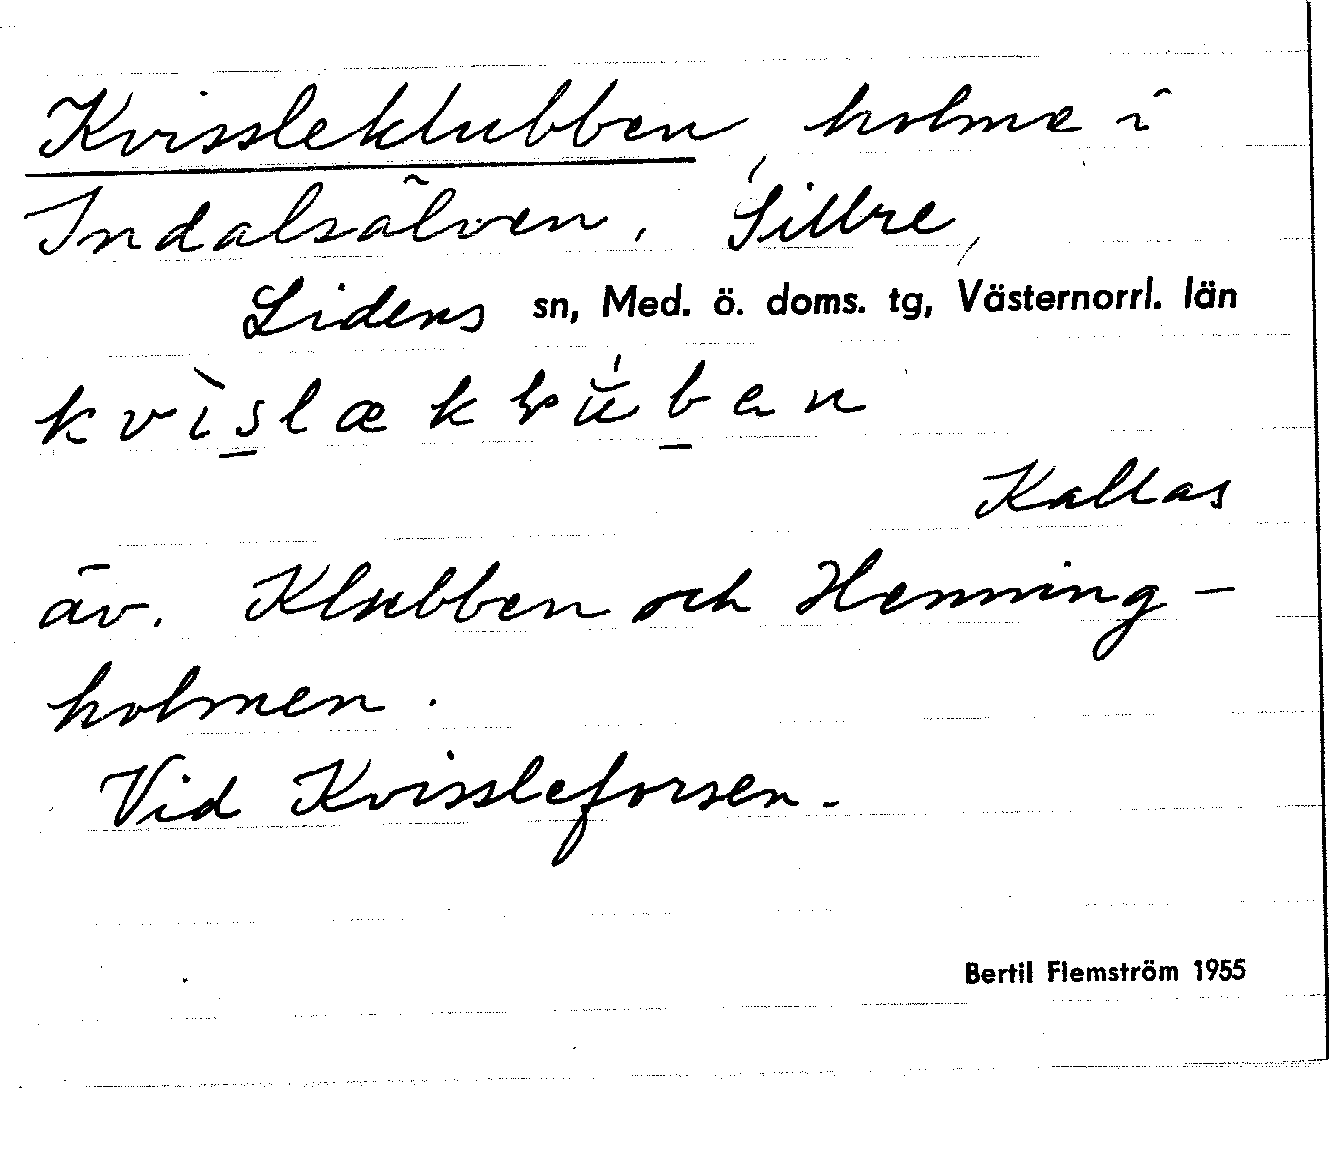 Kvissleklubben, holme i
Indalsälven, Sillre,
Lidens sn, Med. ö. doms. tg, Västernorrl. län
Kallas
äv. Klubben och Henning-
holmen.
Vid Kvissleforsen.
Bertil Flemström 1955